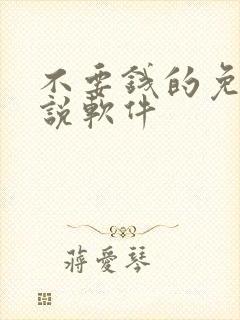 不要錢的免
說軟件
蔣愛琴